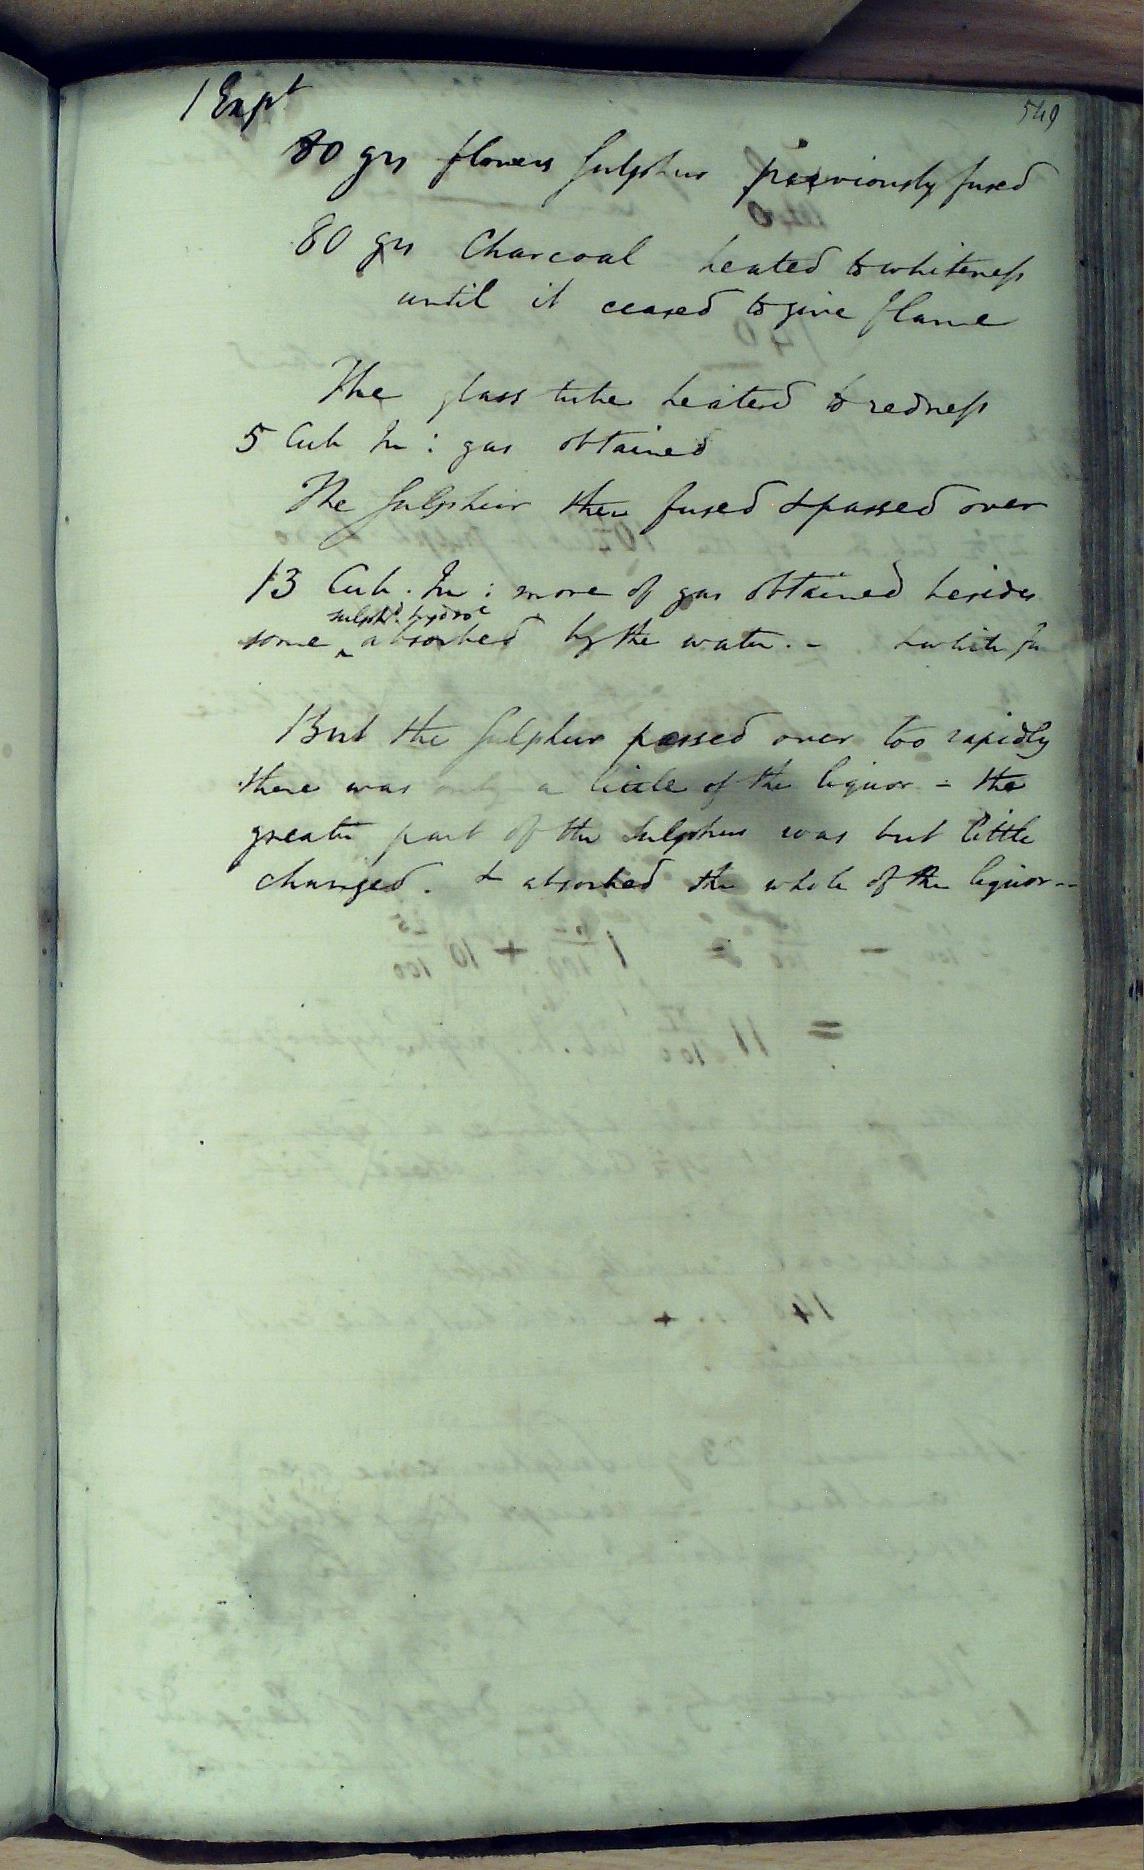 549
1 Expt
80 grs flowers Sulphur previously fused
80 grs Charcoal heated to whiteness
until it ceased to give flame
The glass tube heated to redness
5 Cub In: gas obtained
The Sulphur then fused & passed over
13 Cub. In: more of gas obtained besides
sulphd. hydroe
some ‸ absorbed by the water. -
But the Sulphur passed over too rapidly
there was only a little of the liquor - the
greater part of the Sulphur was but little
changed. & absorbed the whole of the liquor --